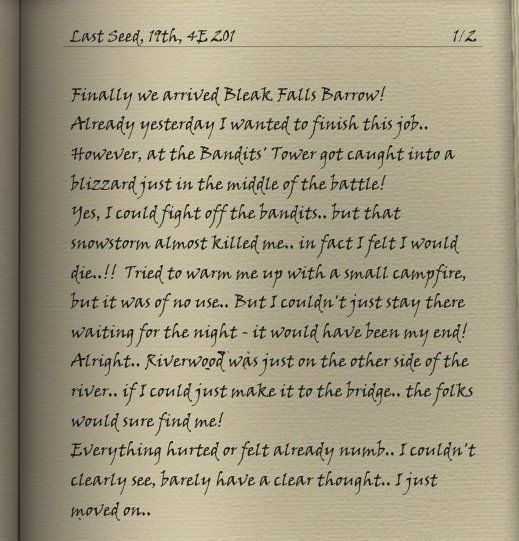 Last Seed, 19th, 4E 201 1/2
Finally we arrived Bleak Falls Barrow!
Already yesterday I wanted to finish this job..
However, at the Bandits' Tower got caught into a
blizzard just in the middle of the battle!
Yes, I could fight off the bandits.. but that
snowstorm almost killed me.. in fact I felt I would
die..!! Tried to warm me up with a small campfire,
but it was of no use.. But I couldn't just stay there
waiting for the night - it would have been my end!
Alright.. Riverwood was just on the other side of the
river.. if I could just make it to the bridge.. the folks
would sure find me!
Everything hurted or felt already numb.. I couldn't
clearly see, barely have a clear thought.. I just
moved on..